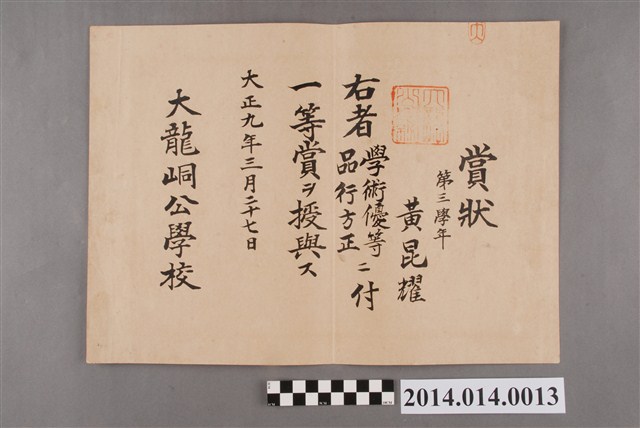 賞狀
第三學年
黃昆耀
右者學術優等品行方正ニ付
一等賞ヲ授與ス
大正九年三月二十七日
大龍峒公學校
2014.014.0013